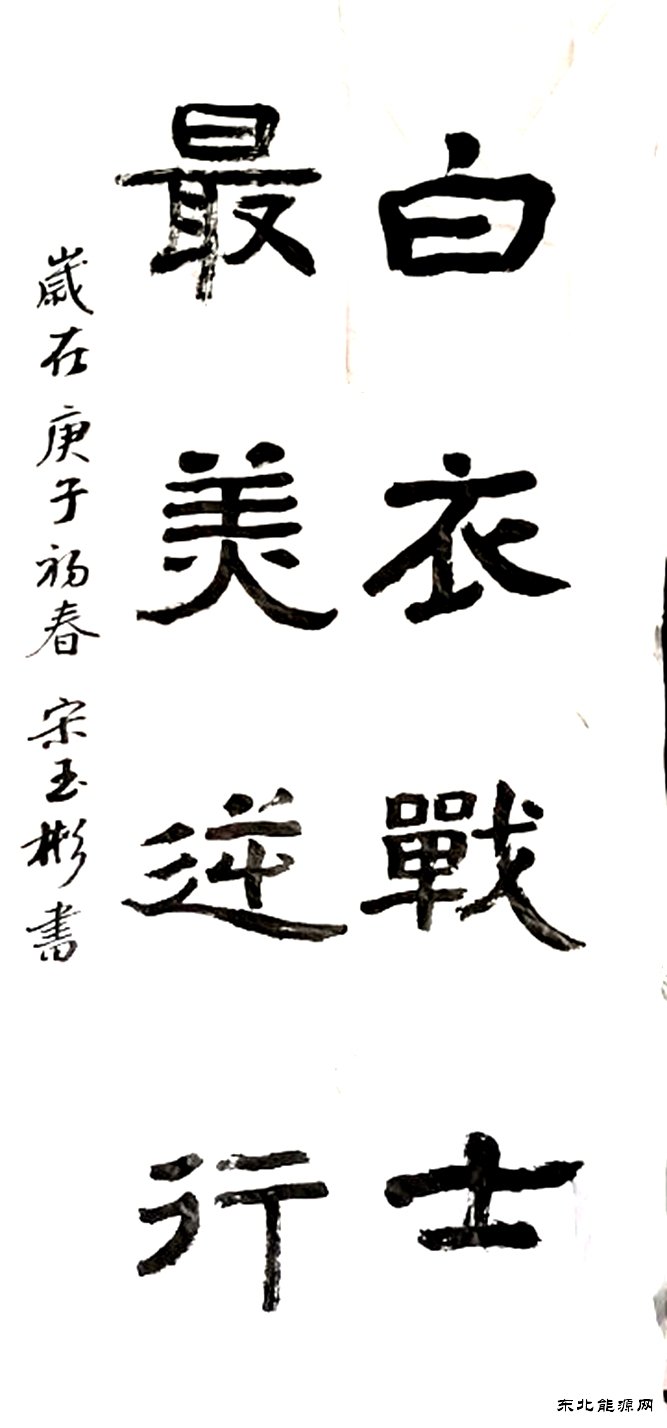 白衣戰士
最美逆行
歲在庚子初春 宋玉彬書
东北能源网